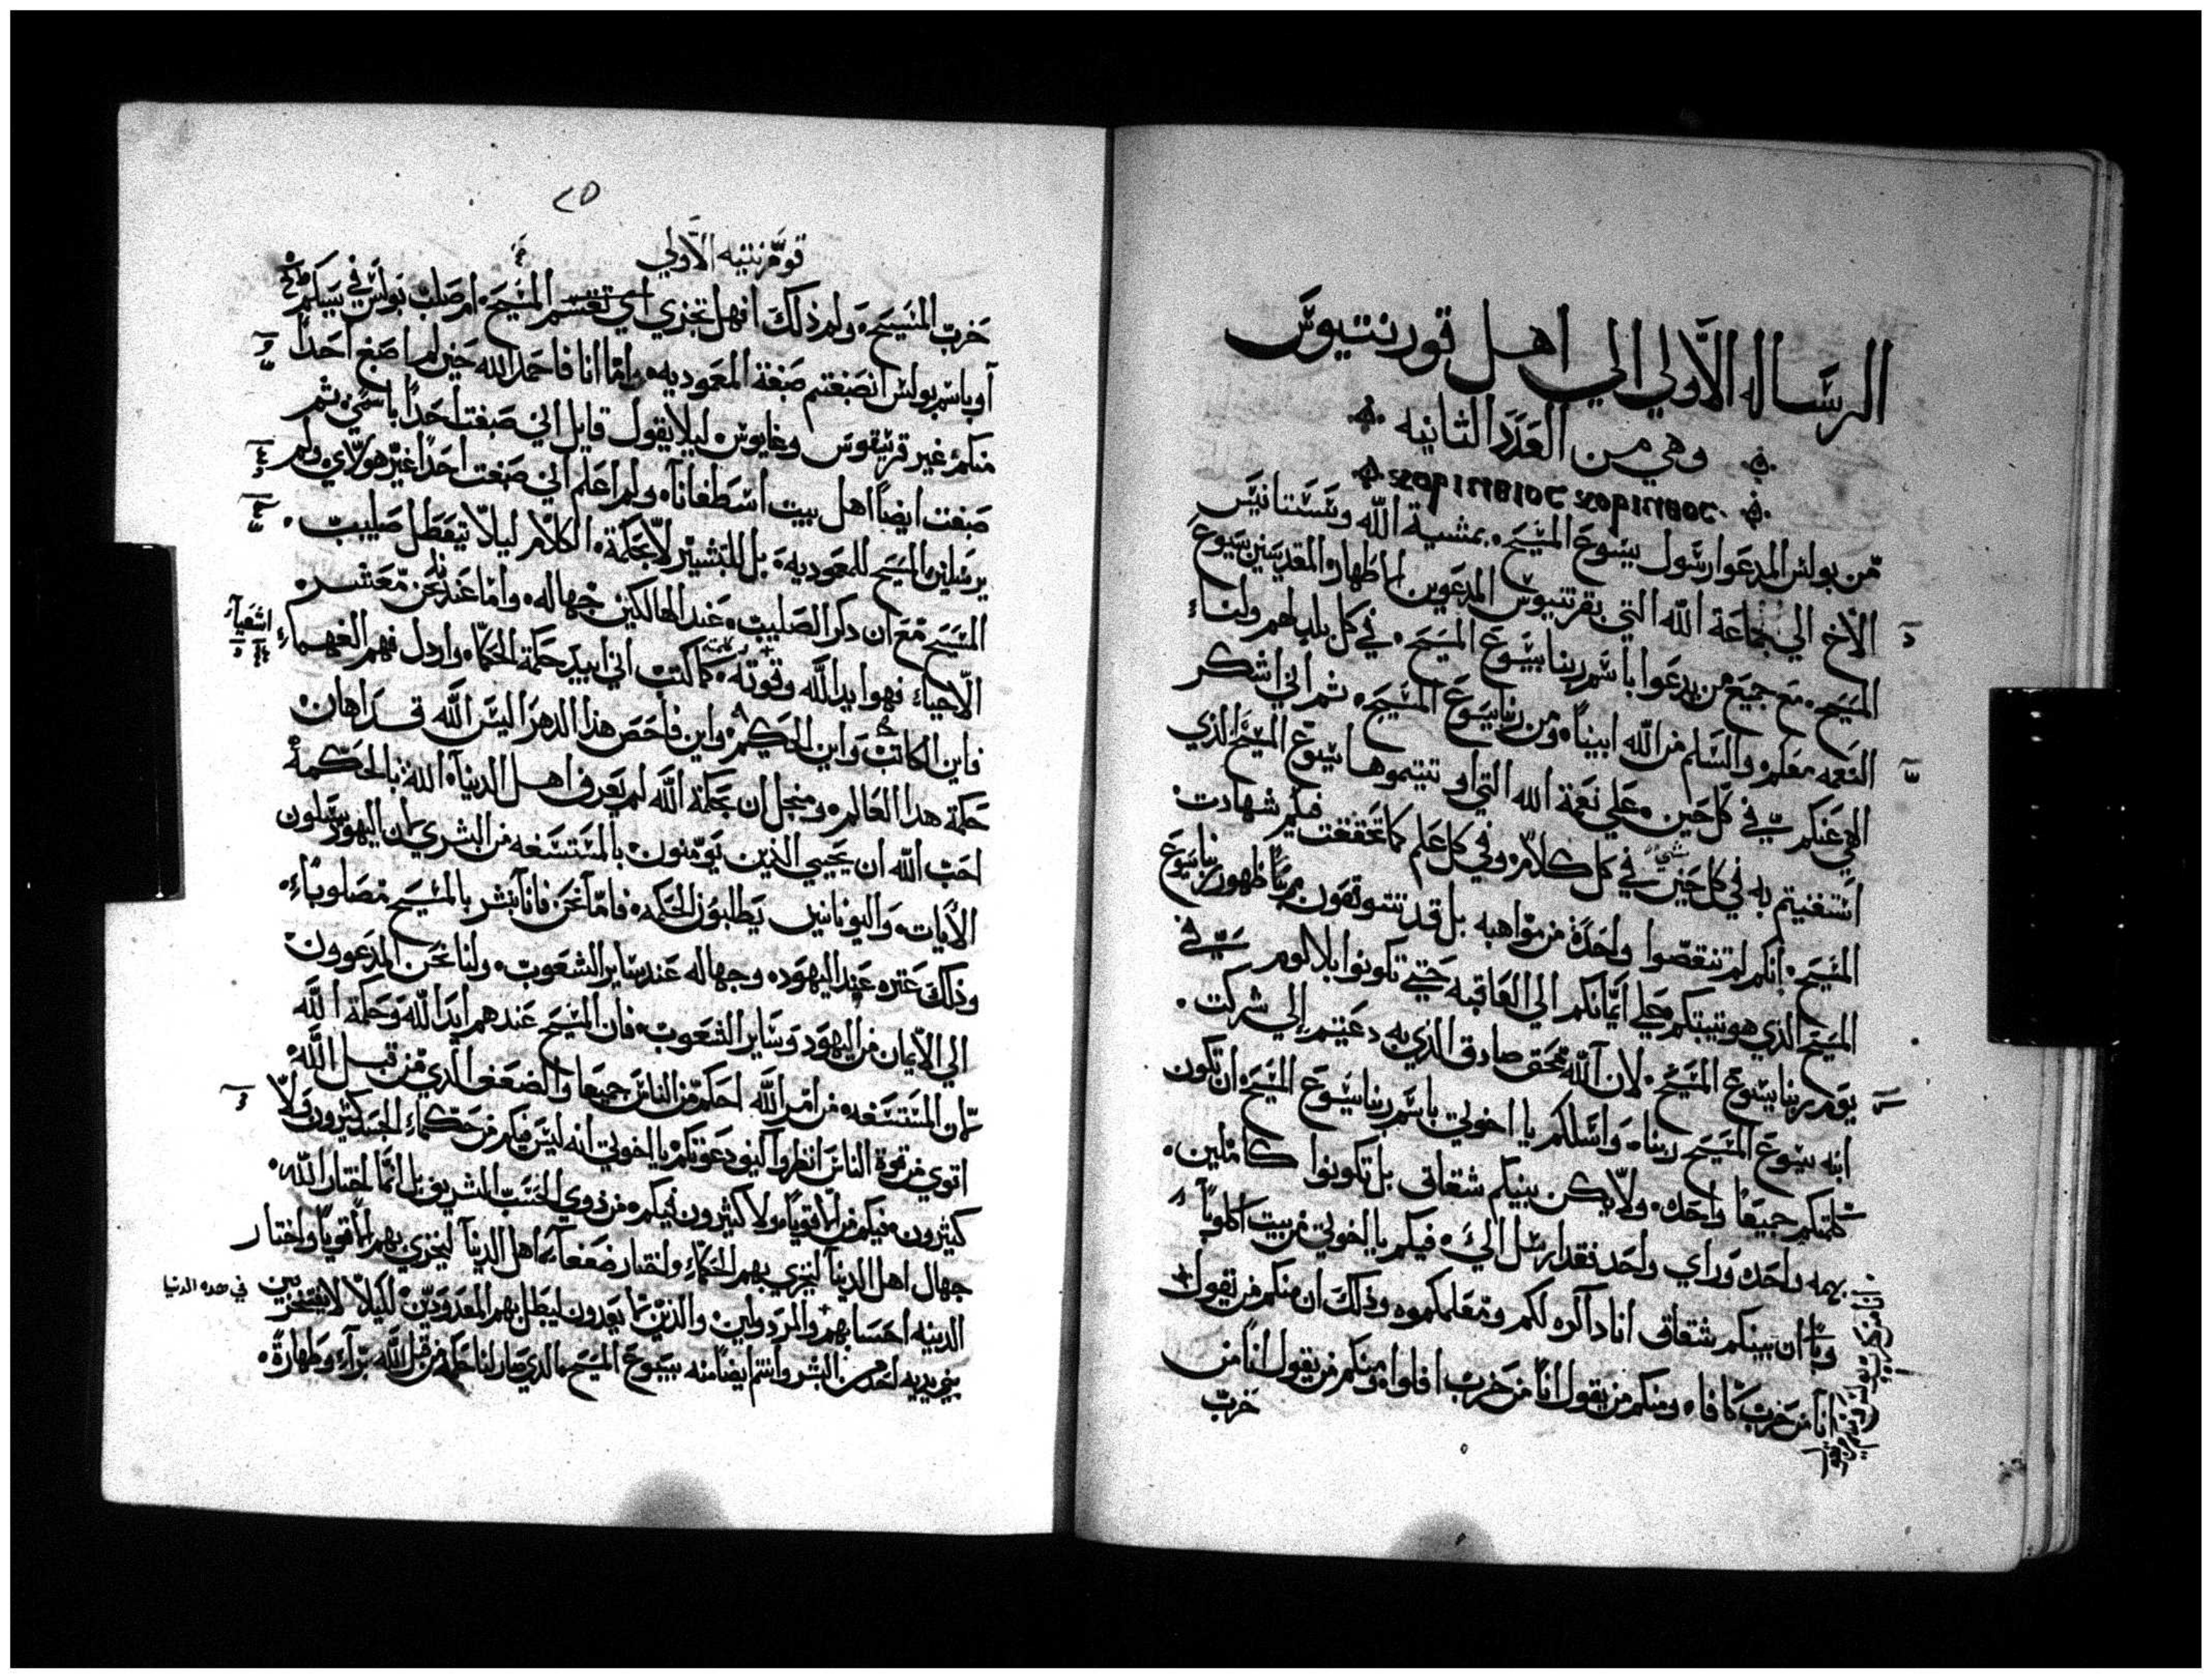 الرساله الاولي الي اهل قورنتيوس
وهي من العدد الثانيه
من بولس المدعوا رسول يسوع المسيح بمشية الله وسستانيس
الاخ الي جماعة الله التي بقرنتيوس المدعوين الاطهار المقدسين بيسوع
المسيح مع جميع من يدعوا باسم ربنا يسوع المسيح في كل بلد لهم ولنا
النعمه معكم والسلم من الله ابينا ومن ربنا يسوع المسيح ثم اني اشكر
الاهي عنكم في كل حين علي نعمة الله التي اوتيتموها بيسوع المسيح الذي
استغنيتم به في كل حين في كل كلام وفي كل علم كما تحققت فيكم شهادت
المسيح انكم لم تنقصوا واحدة من مواهبه بل قد تتوقعون ظهور ربنا يسوع
المسيح الذي هو يثبتكم علي ايمانكم الي العاقبه حتي تكونوا بلا لوم في
يوم ربنا يسوع المسيح لان الله محق صادق الذي به دعيتم الي شركت
ابنه يسوع المسيح ربنا واسلكم يا اخوتي باسم ربنا يسوع المسيح ان تكون
كلمتكم جميعا واحده ولا يكن بينكم شقاق بل تكونوا كاملين
بهمه واحده وراي واحد فقد ارسل الي فيكم يا اخوتي من بيت اكلويا
ان بينكم شقاق انا ذاكره لكم ومعلمكموه وذلك ان منكم من يقول
انا من حزب كافا ومنكم من يقول انا من حزب افلوا ومنكم من يقول انا من
حزب
٢٥
قورنتيه الاولي
حزب المسيح ولم ذلك افهل تجزي اي تقسم المسيح ام صلب بولس في سببكم
او باسم بولس انصبغتم صبغة المعموديه واما انا فاحمد الله حين لم اصبغ احدا
منكم غير قريسقوس وغايوس ليلا يقول قايل اني صبغت احدا باسمي ثم
صبغت ايضا اهل بيت اسطفانا ولم اعلم اني صبغت احدا غير هولاي ولم
يرسلني المسيح للمعموديه بل للتبشير لا بحكمة الكلام ليلا يتعطل صليب
المسيح مع ان ذكر الصليب عند الهالكين جهاله واما عندنا نحن معشر
الاحياء فهوا يد الله وقوته كما كتب اني ابيد حكمة الحكماء وارذل فهم الفهماء
اشعياء
فاين الكاتب واين الحكيم واين فاحص هذا الدهر اليس الله قد اهان
حكمة هذا العالم ومن اجل ان بحكمة الله لم يعرف اهل الدنيا الله بالحكمة
احب الله ان يحيي الذين يومنون بالمستسفه من البشري لان اليهود يسلون
الايات واليونانيين يطلبون الحكمه فاما نحن فانا نبشر بالمسيح مصلوبا
وذلك عتره عند اليهود وجهاله عند ساير الشعوب ولنا نحن المدعوون
الي الايمان من اليهود وساير الشعوب فان المسيح عندهم ايد الله وحكمة الله
لان المستسفه من امر الله احكم من الناس جميعا والضعف الذي من قبل الله
اقوي من قوة الناس انظروا كيف دعوتكم يا اخوتي انه ليس فيكم من حكماء الجسد كثيرون ولا
كثيرون فيكم من الاقويا ولا كثيرون فيكم من ذوي الحسب الشريف بل انما اختار الله
جهال اهل الدنيا ليخزي بهم الحكماء واختار ضعفاء اهل الدنيا ليخزي بهم الاقويا واختار
الدنيه احسابهم والمرذولين والذين لا يعدون ليبطل بهم المعدودين لكيلا يفتخر
في هذه الدنيا
بين يديه احد من البشر وانتم ايضا منه بيسوع المسيح الذي صار لنا حكمة من قبل الله برآء وطهارة